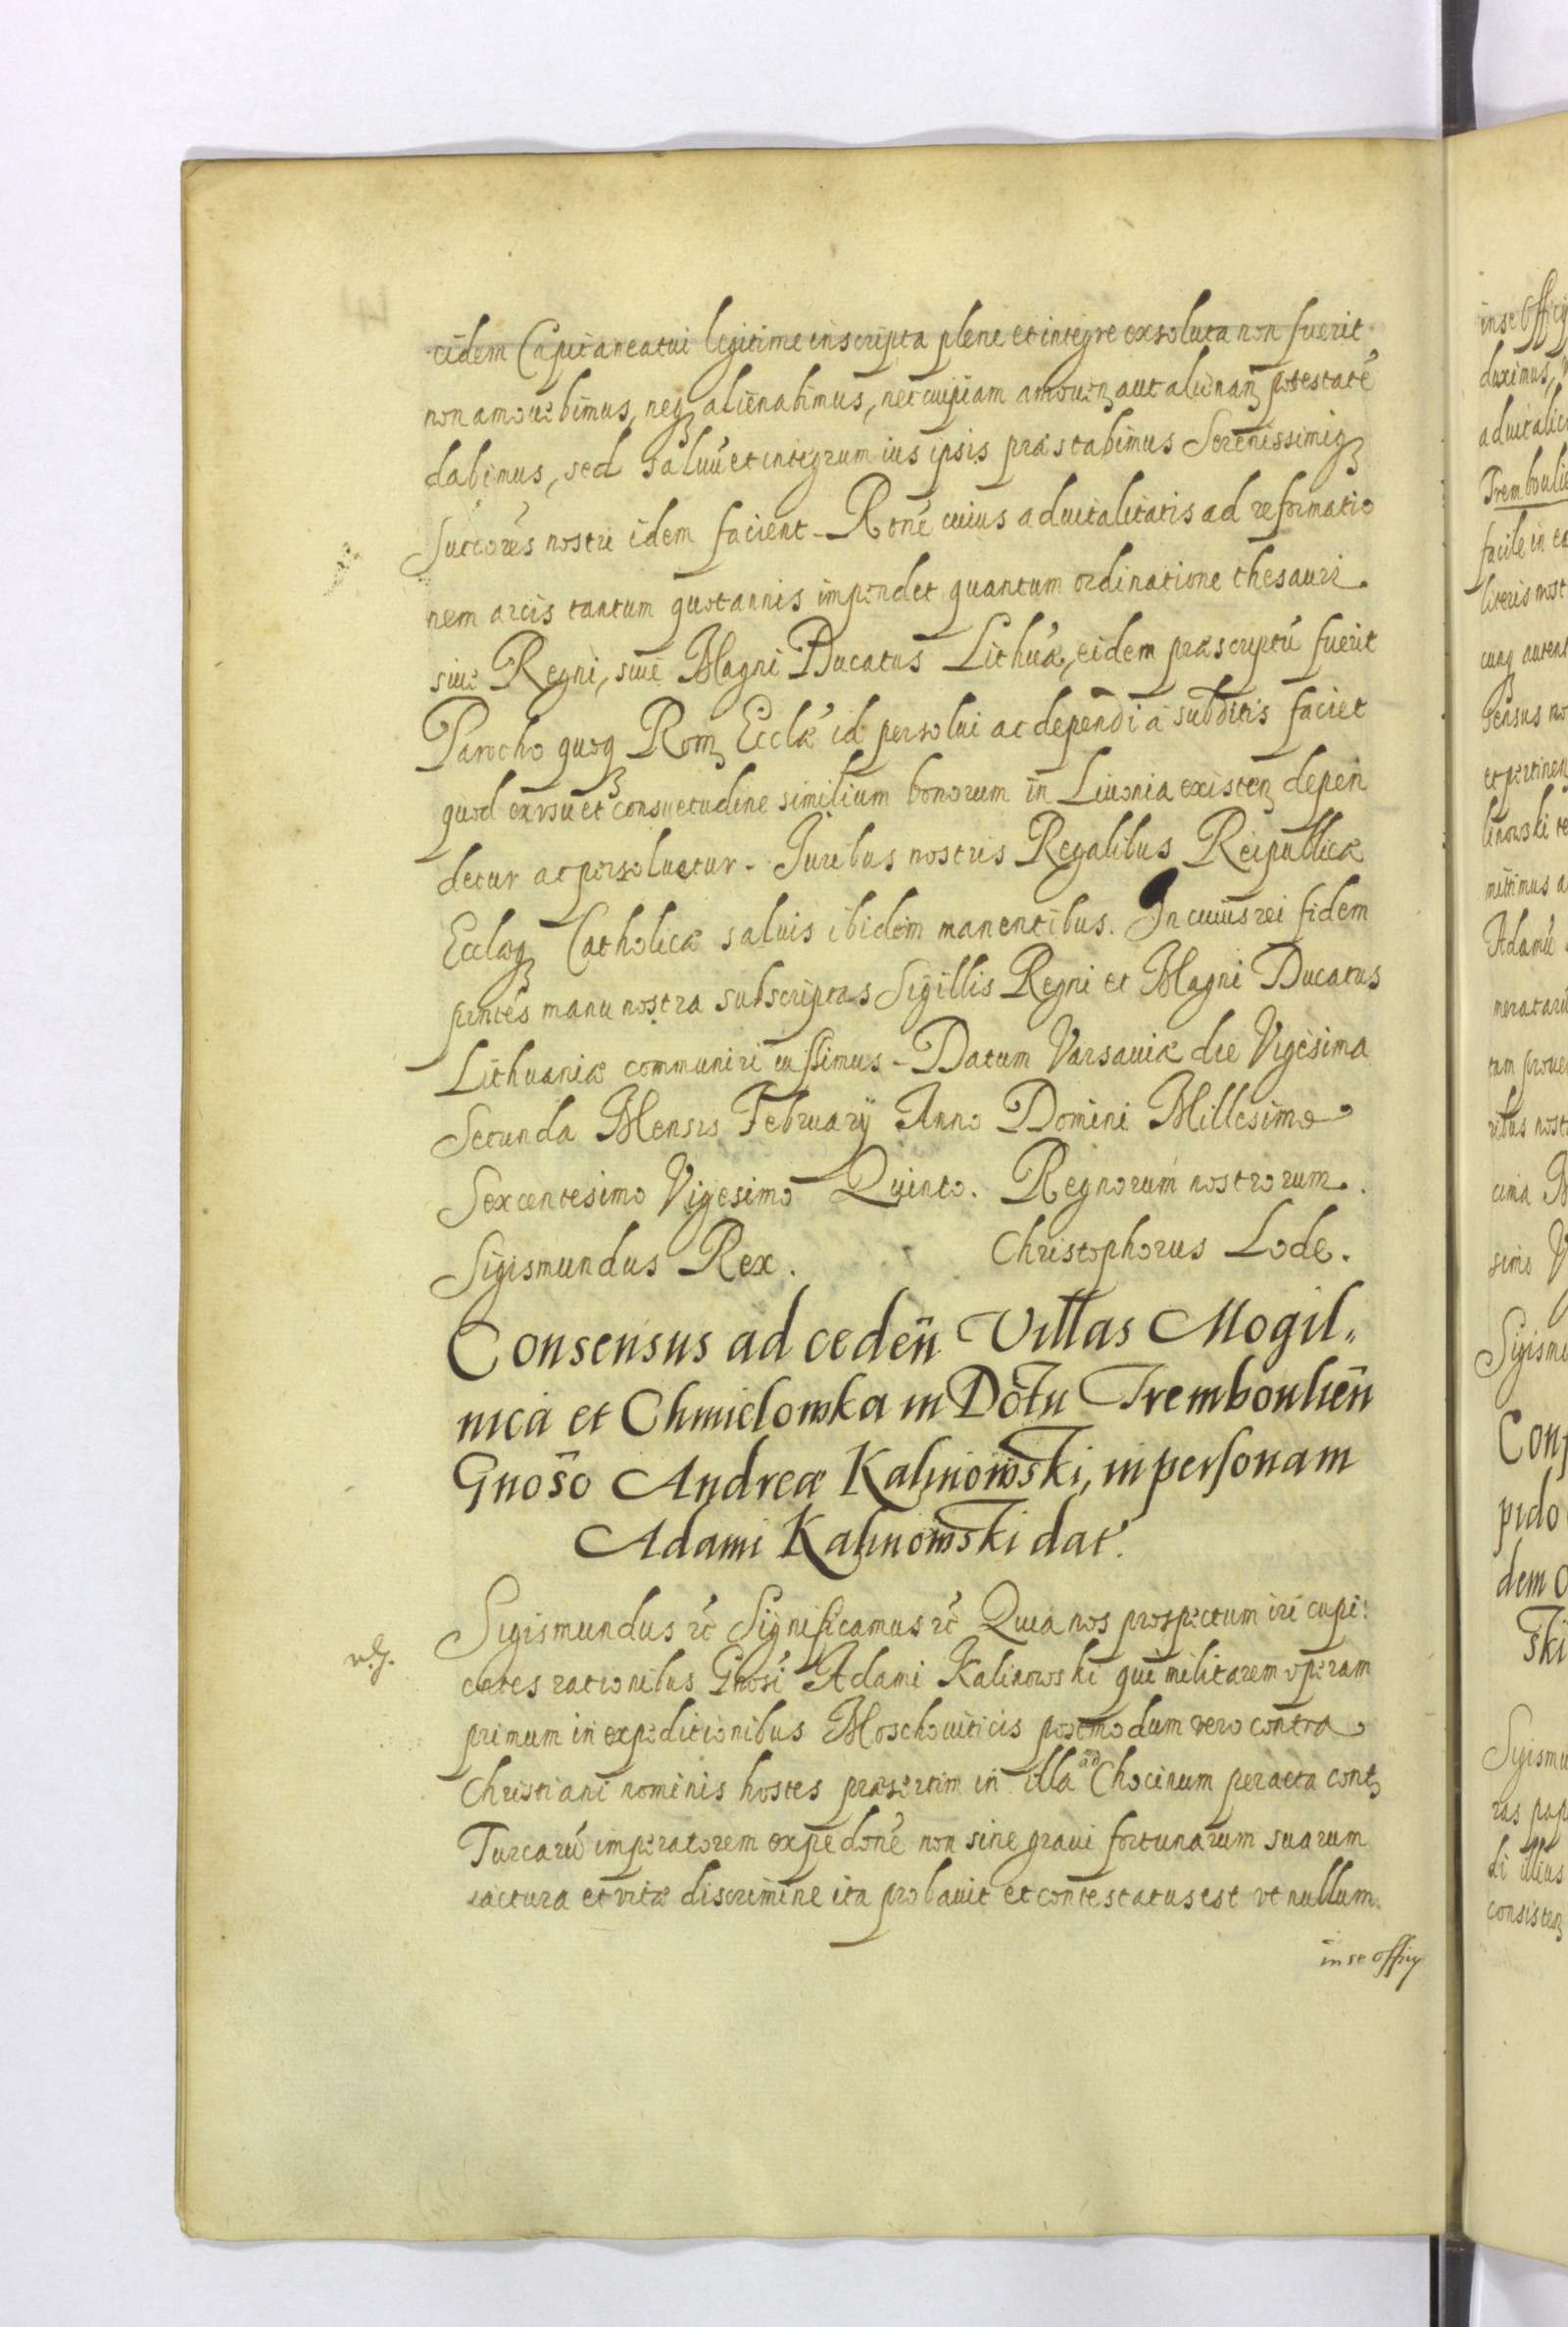 eidem Capitaneatui legitime inscripta plene et integre exsoluta non fuerit
non amouebimus, neqꝫ alienabimus, nec cuipiam amouenꝫ aut alienanꝫ potestatē
dabimus, sed saluū et integrum ius ipsis præstabimus Serenissimiqꝫ
Succorēs nostri idem facient. Ronē cuius aduitalitatis ad reformatio
nem arcis tantum quotannis impendet quantum ordinatione thesauri
siue Regni, siue Magni Ducatus Lithuæ, eidem præscriptū fuerit
Parocho quoqꝫ Romꝫ Ecclæ id persolui ac dependi à subditis faciet
quod ex vsu et consuetudine similium bonorum in Liuonia existenꝫ depen
detur ac persoluetur. Juribus nostris Regalibus Reipublicæ
Ecclæqꝫ Catholicæ saluis ibidem manentibus. In cuius rei fidem
pntēs manu nostra subscriptas Sigillis Regni et Magni Ducatus
Lithuaniæ communiri iussimus. Datum Varsauiæ die Vigesima
Secunda Mensis February Anno Domini Millesimo
Sexcentesimo Vigesimo Quinto. Regnorum nostrorum.
Sigismundus Rex. Christophorus Lode.
Consensus ad cedeñ Villas Mogil„
nica et Chmielowka in Dōtu Trembouliēn
Gnōso Andreæ Kalinowski, in personam
Adami Kalinowski dat̄.
Sigismundus rč Significamus rč Quia nos prospectum iri cupi:
entes rationibus Gnosi Adami Kalinowski qui militarem operam
primum in expeditionibus Moschouiticis postmodum vero contra
Christiani nominis hostes præsertim in illa ad Chocimum peracta contꝫ
Turcarū imperatorem expedonē non sine graui fortunarum suarum
iactura et vitæ discrimine ita probauit et contestatus est vt nullum
in se offiy